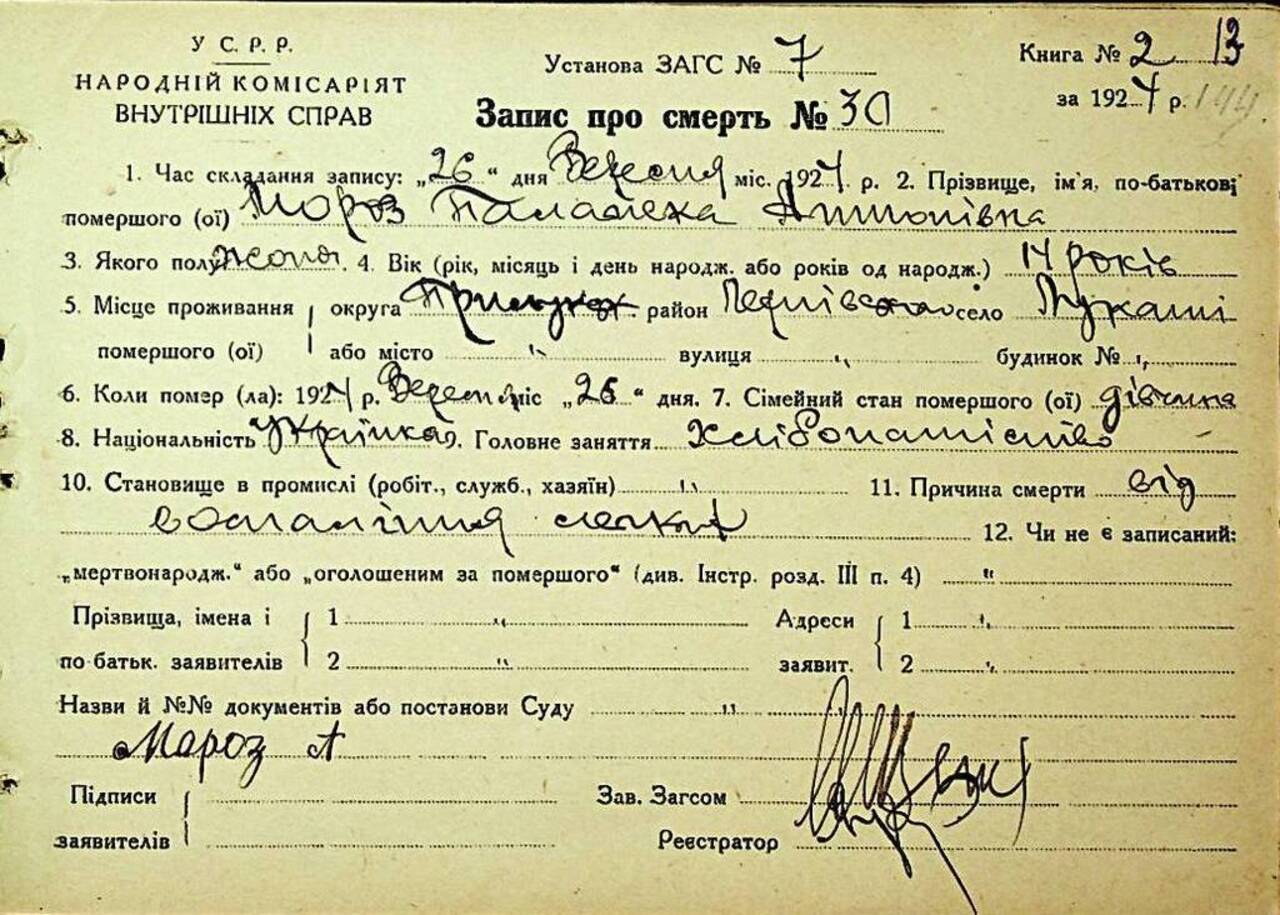 У С. Р. Р.
НАРОДНІЙ КОМІСАРІЯТ
ВНУТРІШНІХ СПРАВ
Установа ЗАГС № 7
Запис про смерть № 30
Книга № 2 13
за 1924 р. 144
1. Час складання запису: „26" дня Вересня міс. 1924 р. 2. Прізвище, ім'я, по-батькові
помершого (ої) Мороз Палажека Антонівна
3. Якого полу жоноч. 4. Вік (рік, місяць і день народж. або років од народж.) 14 років
5. Місце проживання округа район село Лукаші
помершого (ої) або місто " вулиця " будинок № "
6. Коли помер (ла): 1924 р. Вересня міс „25" дня. 7. Сімейний стан помершого (ої) дівчина
8. Національність українка 9. Головне заняття Хлібопашіство
10. Становище в промислі (робіт., служб., хазяїн) " 11. Причина смерти від
воспаління легких 12. Чи не є записаний:
„мертвонародж." або „оголошеним за помершого" (див. Інстр. розд. III п. 4) "
Прізвища, імена і 1 " Адреси 1 "
по батьк. заявителів 2 " заявит. 2 "
Назви й №№ документів або постанови Суду "
Мароз А
Підписи Зав. Загсом
заявителів Реєстратор